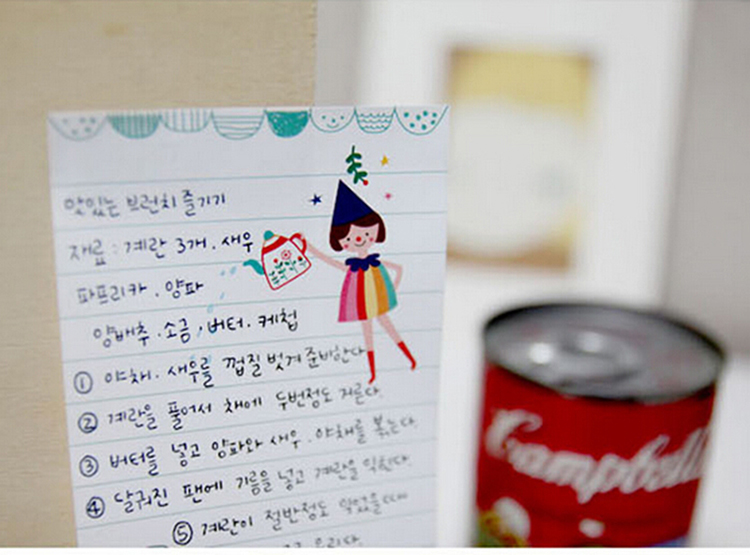 맛있는 브런치 즐기기
재료 : 계란 3개 . 새우
파프리카 . 양파
양배추 . 소금 , 버터 . 케첩
① 야채 . 새우를 껍질 벗겨 준비한다
② 계란을 풀어서 채에 두번정도 거른다.
③ 버터를 넣고 양파와 새우 . 야채를 볶는다.
④ 달궈진 팬에 기름을 넣고 계란을 익힌다.
⑤ 계란이 절반정도 익었을때
Campbell